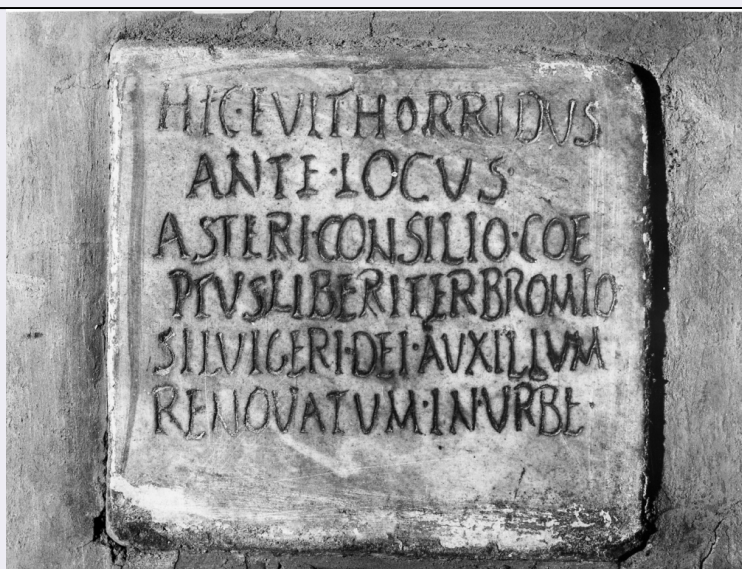 HIC·FVIT HORRIDUS
ANTE·LOCUS·
ASTERI·CONSILIO·COE
PTVS LIBERI ITER BROMIO
SILVIGERI·DEI·AVXILIVM
RENOVATVM·IN·VRBE·